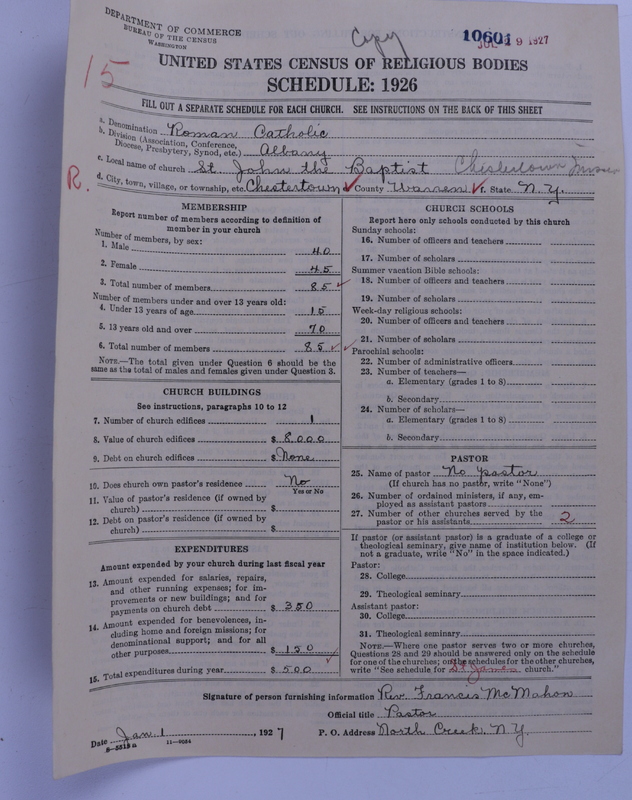 DEPARTMENT OF COMMERCE
BUREAU OF THE CENSUS
WASHINGTON
Copy
10601
JUL 29 1927
15
UNITED STATES CENSUS OF RELIGIOUS BODIES
SCHEDULE: 1926
FILL OUT A SEPARATE SCHEDULE FOR EACH CHURCH. SEE INSTRUCTIONS ON THE BACK OF THIS SHEET
a. Denomination Roman Catholic
b. Division (Association, Conference, Diocese, Presbytery, Synod, etc.) Albany
c. Local name of church St. John the Baptist Chestertown
R.
d. City, town, village, or township, etc. Chestertown e. County Warren f. State N.Y.
MEMBERSHIP
Report number of members according to definition of
member in your church
Number of members, by sex:
1. Male 40
2. Female 45
3. Total number of members 85
Number of members under and over 13 years old:
4. Under 13 years of age 15
5. 13 years old and over 70
6. Total number of members 85
NOTE.—The total given under Question 6 should be the
same as the total of males and females given under Question 3.
CHURCH BUILDINGS
See instructions, paragraphs 10 to 12
7. Number of church edifices 1
8. Value of church edifices $8000
9. Debt on church edifices $None
10. Does church own pastor's residence No
Yes or No
11. Value of pastor's residence (if owned by
church) $
12. Debt on pastor's residence (if owned by
church) $
EXPENDITURES
Amount expended by your church during last fiscal year
13. Amount expended for salaries, repairs,
and other running expenses; for im-
provements or new buildings; and for
payments on church debt $350
14. Amount expended for benevolences, in-
cluding home and foreign missions; for
denominational support; and for all
other purposes $150
15. Total expenditures during year $500
CHURCH SCHOOLS
Report here only schools conducted by this church
Sunday schools:
16. Number of officers and teachers
17. Number of scholars
Summer vacation Bible schools:
18. Number of officers and teachers
19. Number of scholars
Week-day religious schools:
20. Number of officers and teachers
21. Number of scholars
Parochial schools:
22. Number of administrative officers
23. Number of teachers—
a. Elementary (grades 1 to 8)
b. Secondary
24. Number of scholars—
a. Elementary (grades 1 to 8)
b. Secondary
PASTOR
25. Name of pastor No pastor
(If church has no pastor, write "None")
26. Number of ordained ministers, if any, em-
ployed as assistant pastors
27. Number of other churches served by the
pastor or his assistants 2
If pastor (or assistant pastor) is a graduate of a college or
theological seminary, give name of institution below. (If
not a graduate, write "No" in the space indicated.)
Pastor:
28. College
29. Theological seminary
Assistant pastor:
30. College
31. Theological seminary
NOTE.—Where one pastor serves two or more churches,
Questions 28 and 29 should be answered only on the schedule
for one of the churches; on the schedules for the other churches,
write "See schedule for St. James church."
Signature of person furnishing information Rev. Francis McMahon
Official title Pastor
Date Jan. 1, 1927 P. O. Address North Creek, N.Y.
8-5513a 11-9084